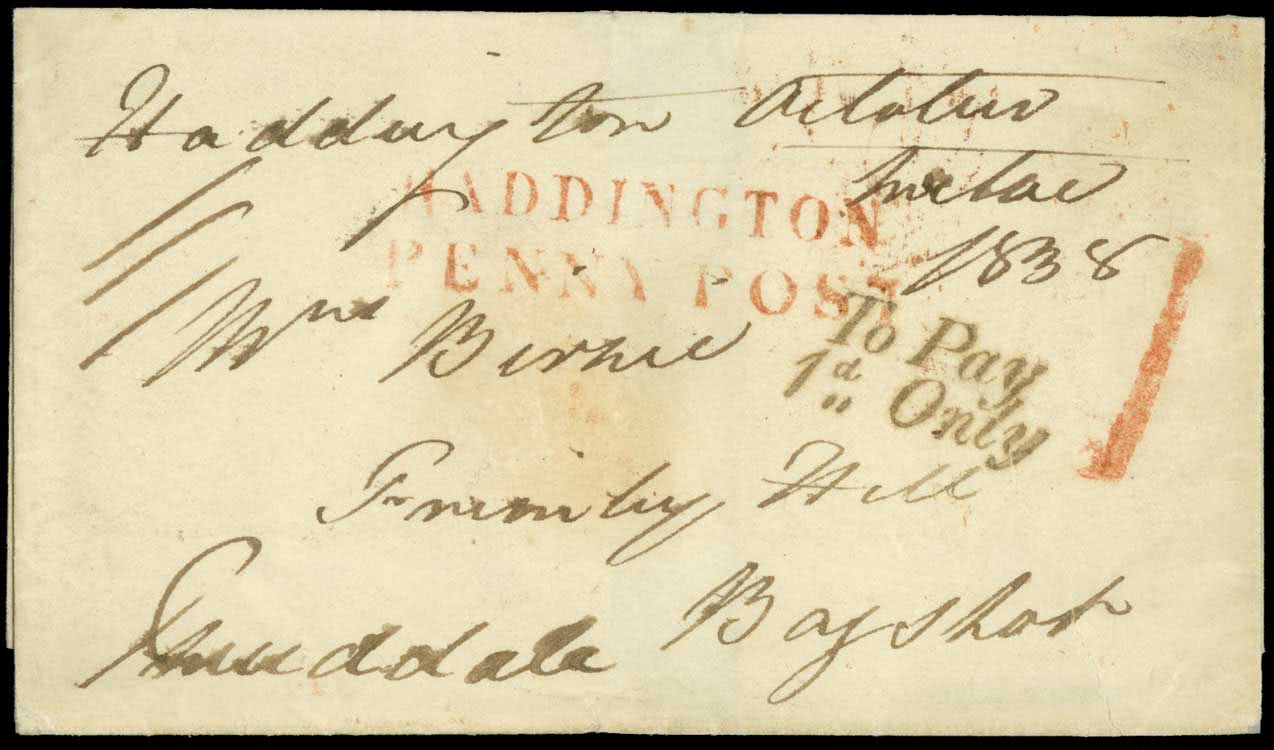 Haddington October
twelve
1838
HADDINGTON
PENNY POST
Mrs Birnie
To Pay
1d Only
Frimley Hill
Bagshot